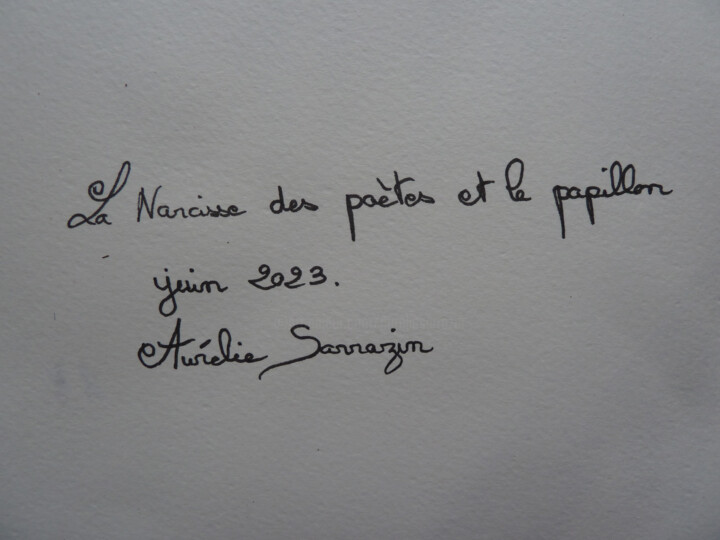 La Narcisse des poètes et le papillon
juin 2023.
Aurélie Sarrazin